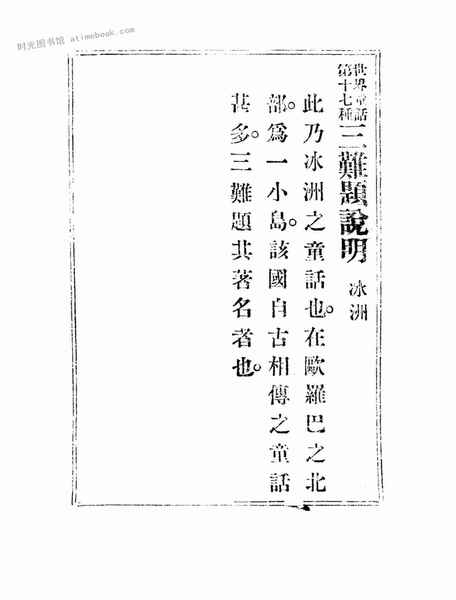 时光图书馆 atimebook.com
世界童話
第十七種
三難題說明 冰洲
此乃冰洲之童話也。在歐羅巴之北
部。爲一小島。該國自古相傳之童話
甚多。三難題其著名者也。